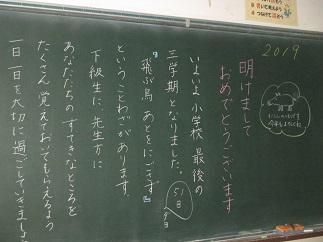 2019
明けまして
おめでとうございます
いよいよ小学校最後の
三学期となりました。
『飛ぶ鳥 あとをにごさず』
ということわざがあります。
下級生に、先生方に
あなたたちの すてきなところを
たくさん 覚えておいてもらえるよう
一日一日を大切に過ごしていきましょう
51日